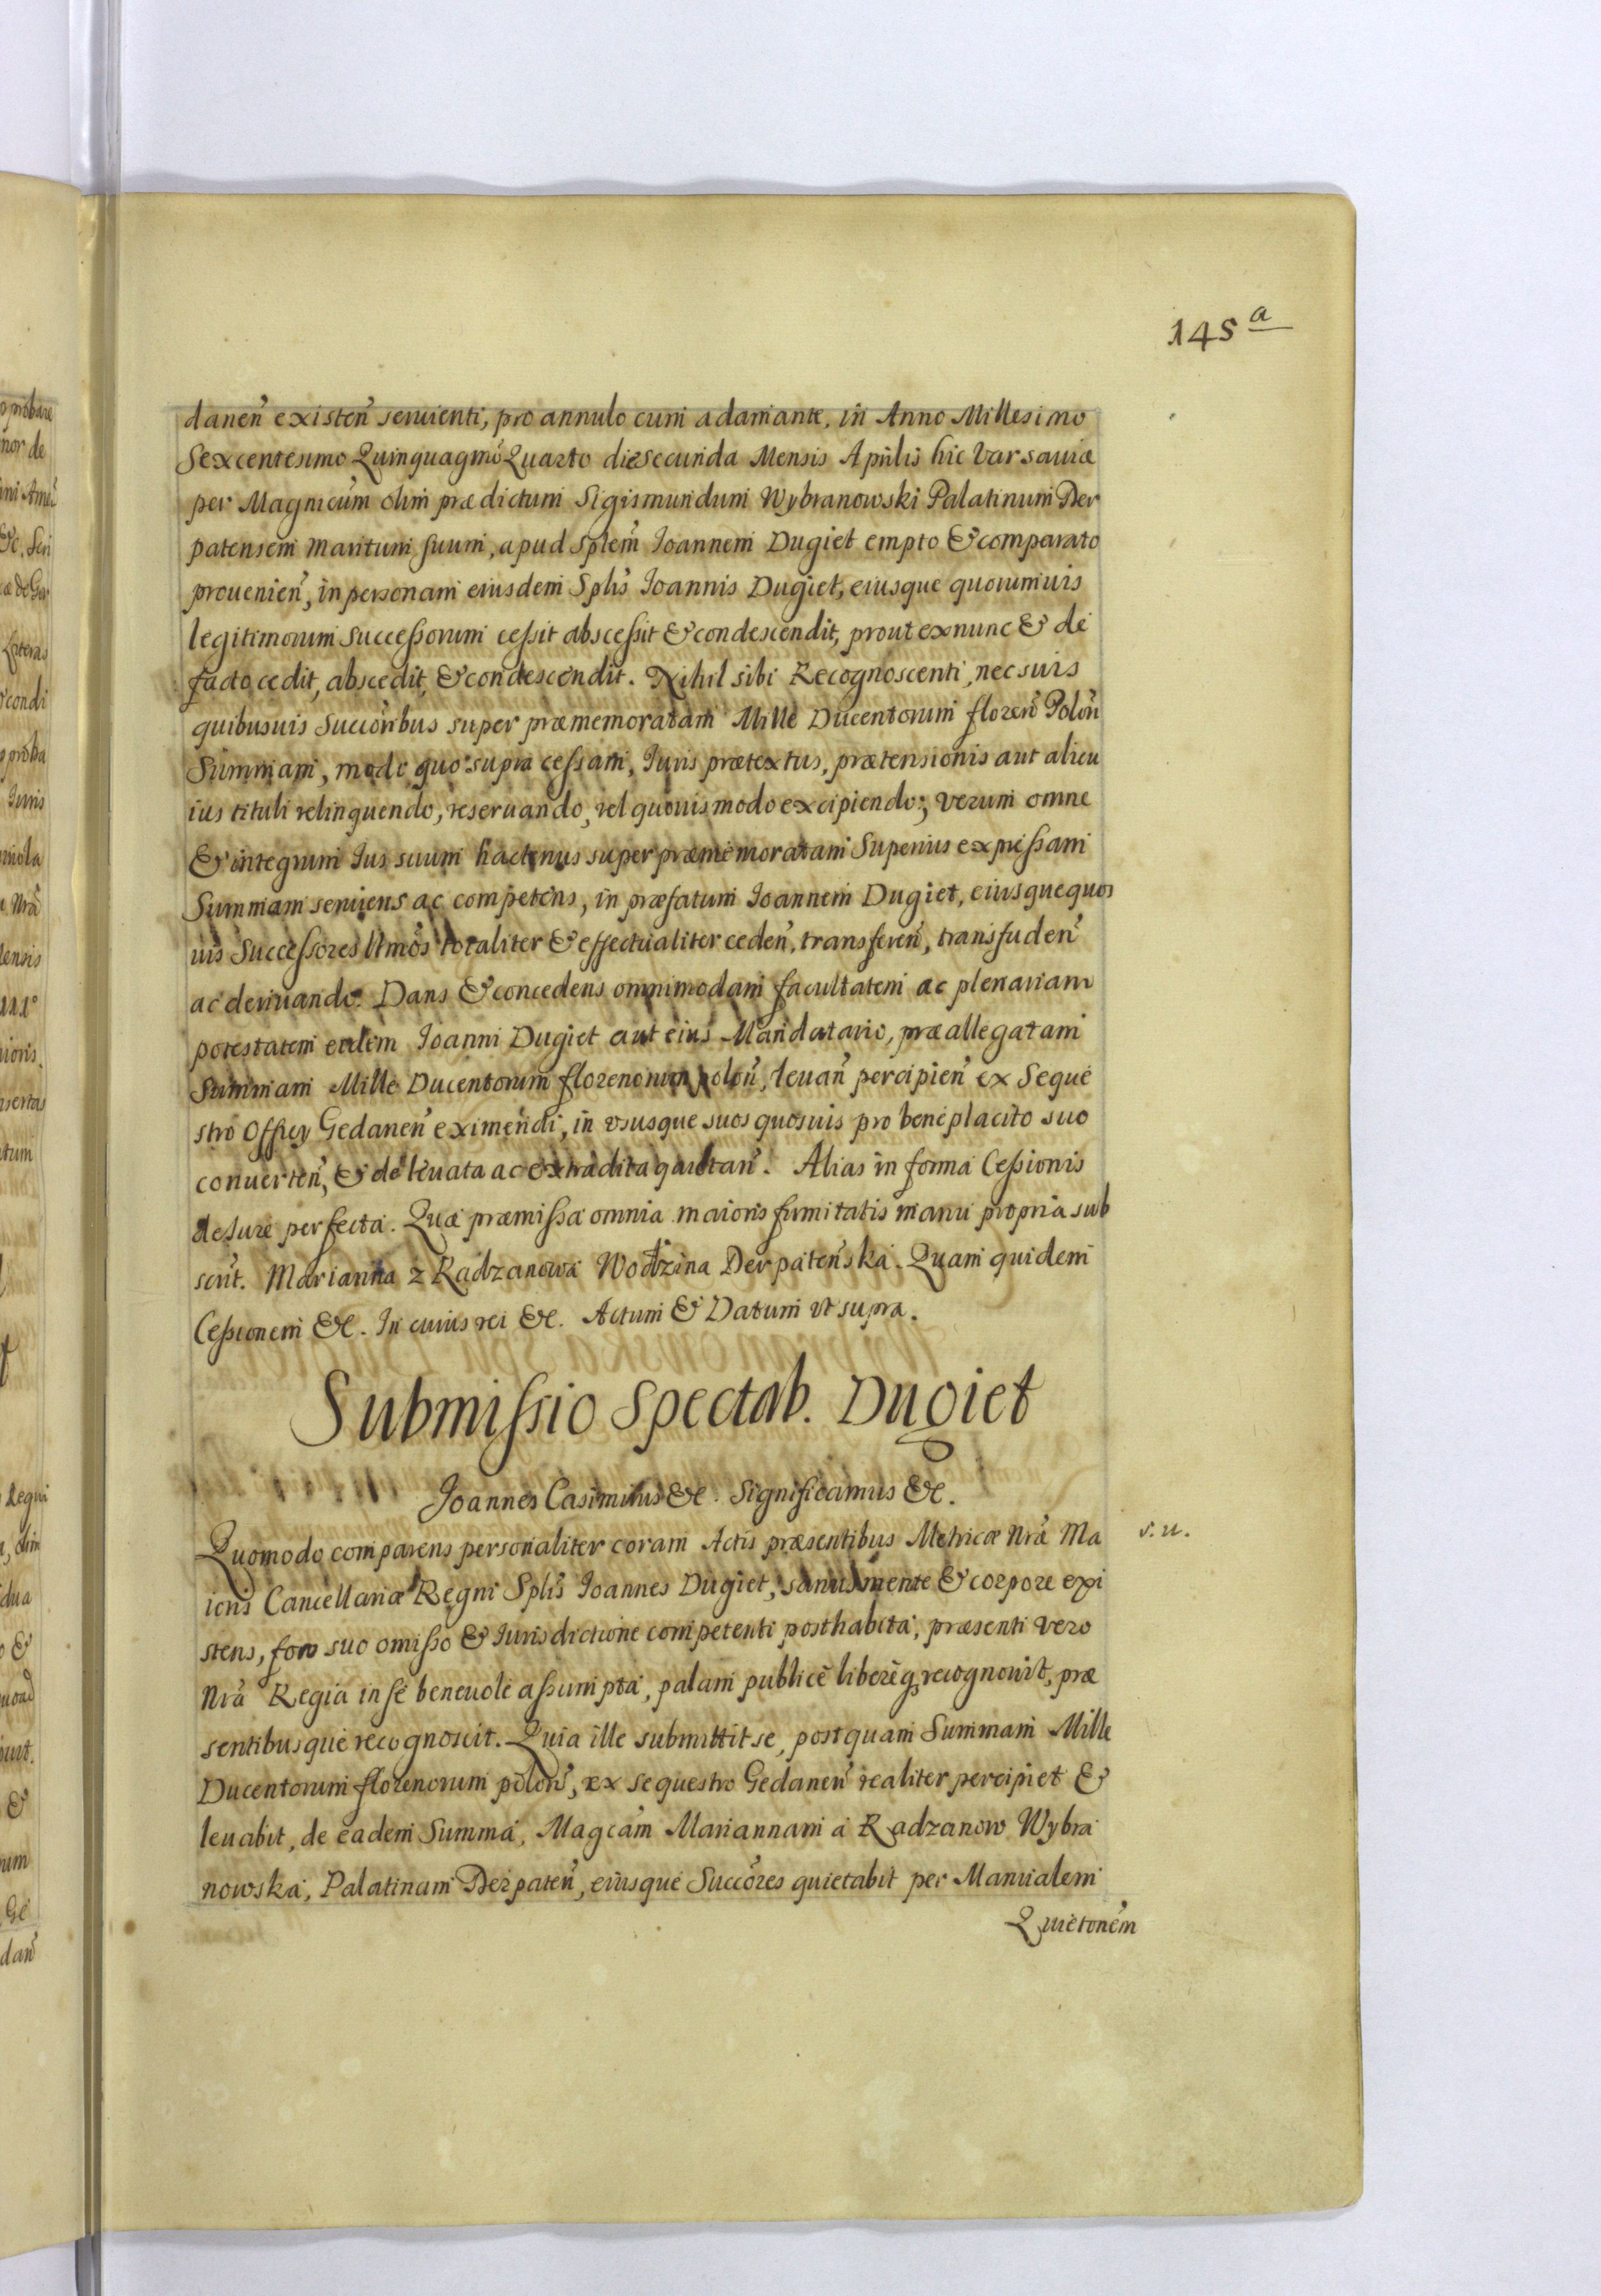 145 a
danen̄ existen̄ seruienti, pro annulo cum adamante, in Anno Millesimo
Sexcentesimo Quinquagmo Quarto die secunda Mensis Aprilis hic Varsauiæ
per Magnicum olim prædictum Sigismundum Wybranowski Palatinum Der
patensem Maritum suum, apud Splem Ioannem Dugiet empto & comparato
prouenien̄, in personam eiusdem Splis Ioannis Dugiet, eiusque quorumuis
legitimorum Successorum cessit abscessit & condescendit, prout ex nunc & de
facto cedit, abscedit, & condescendit. Nihil sibi Recognoscenti, nec suis
quibusuis Succoribus super præmemoratam Mille Ducentorum floren̄ Polon̄
Summam, modo quo supra cessam, Iuris prætextus, prætensionis aut alicu
ius tituli relinquendo, reseruando, vel quouis modo excipiendo; verum omne
& integrum Ius suum hactenus super præmemoratam Superius expressam
Summam seruiens ac competens, in præfatum Ioannem Dugiet, eiusque quos
uis Successores Ltmos totaliter & effectualiter ceden̄, transferen̄, transfuden̄
ac deriuando. Dans & concedens omnimodam facultatem ac plenariam
potestatem eidem Ioanni Dugiet aut eius Mandatario, præallegatam
Summam Mille Ducentorum florenorum polon̄, leuan̄ percipien̄ ex Seque
stro Officy Gedanen̄ eximendi, in vsusque suos quosuis pro beneplacito suo
conuerten̄, & de leuata ac extradita quietan̄. Alias in forma Cessionis
de Iure perfecta. Quæ præmissa omnia maioris firmitatis manu propria sub
scrit. Marianna z Radzanowa Wodzina Derpaten̄ska. Quam quidem
Cessionem &c. In cuius rei &c. Actum & Datum vt supra.
Submissio Spectab. Dugiet
Ioannes Casimirus &c. Significamus &c.
Quomodo comparens personaliter coram Actis præsentibus Metricæ Nrã Ma
s. u.
ioris Cancellariæ Regni Splis Ioannes Dugiet, sanus mente & corpore exi
stens, foro suo omisso & Iurisdictione competenti posthabita, præsenti vero
Nrã Regia in se beneuole assumpta, palam publicè liberèq recognouit, præ
sentibusque recognoscit. Quia ille submittit se, postquam Summam Mille
Ducentorum florenorum polon̄, ex sequestro Gedanen̄ realiter percipiet &
leuabit, de eadem Summa, Magcam Mariannam a Radzanow Wybra
nowska, Palatinam Derpaten̄, eiusque Succores quietabit per Manualem
Quietonem